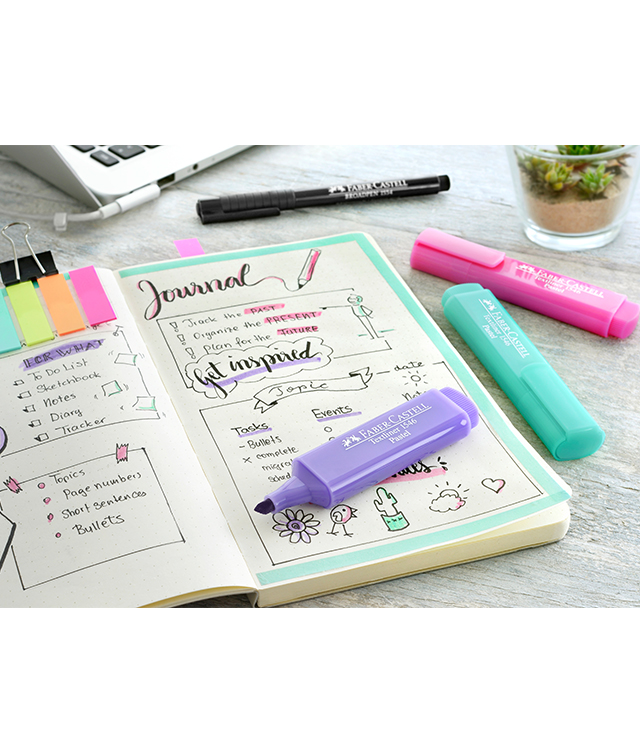 FOR WHAT
To Do LIST
Sketchbook
Notes
Diary
Tracker
Topics
Page numbers
Short sentences
Bullets
Journal
Track the PAST
Organize the PRESENT
Plan for the FUTURE
Get inspired
Topic
date
Tasks
- Bullets
x complete
Events
FABER-CASTELL
BROADPEN 1554
FABER-CASTELL
Textliner 1546
Pastel
FABER-CASTELL
Textliner 1546
Pastel
FABER-CASTELL
Textliner 1546
Pastel